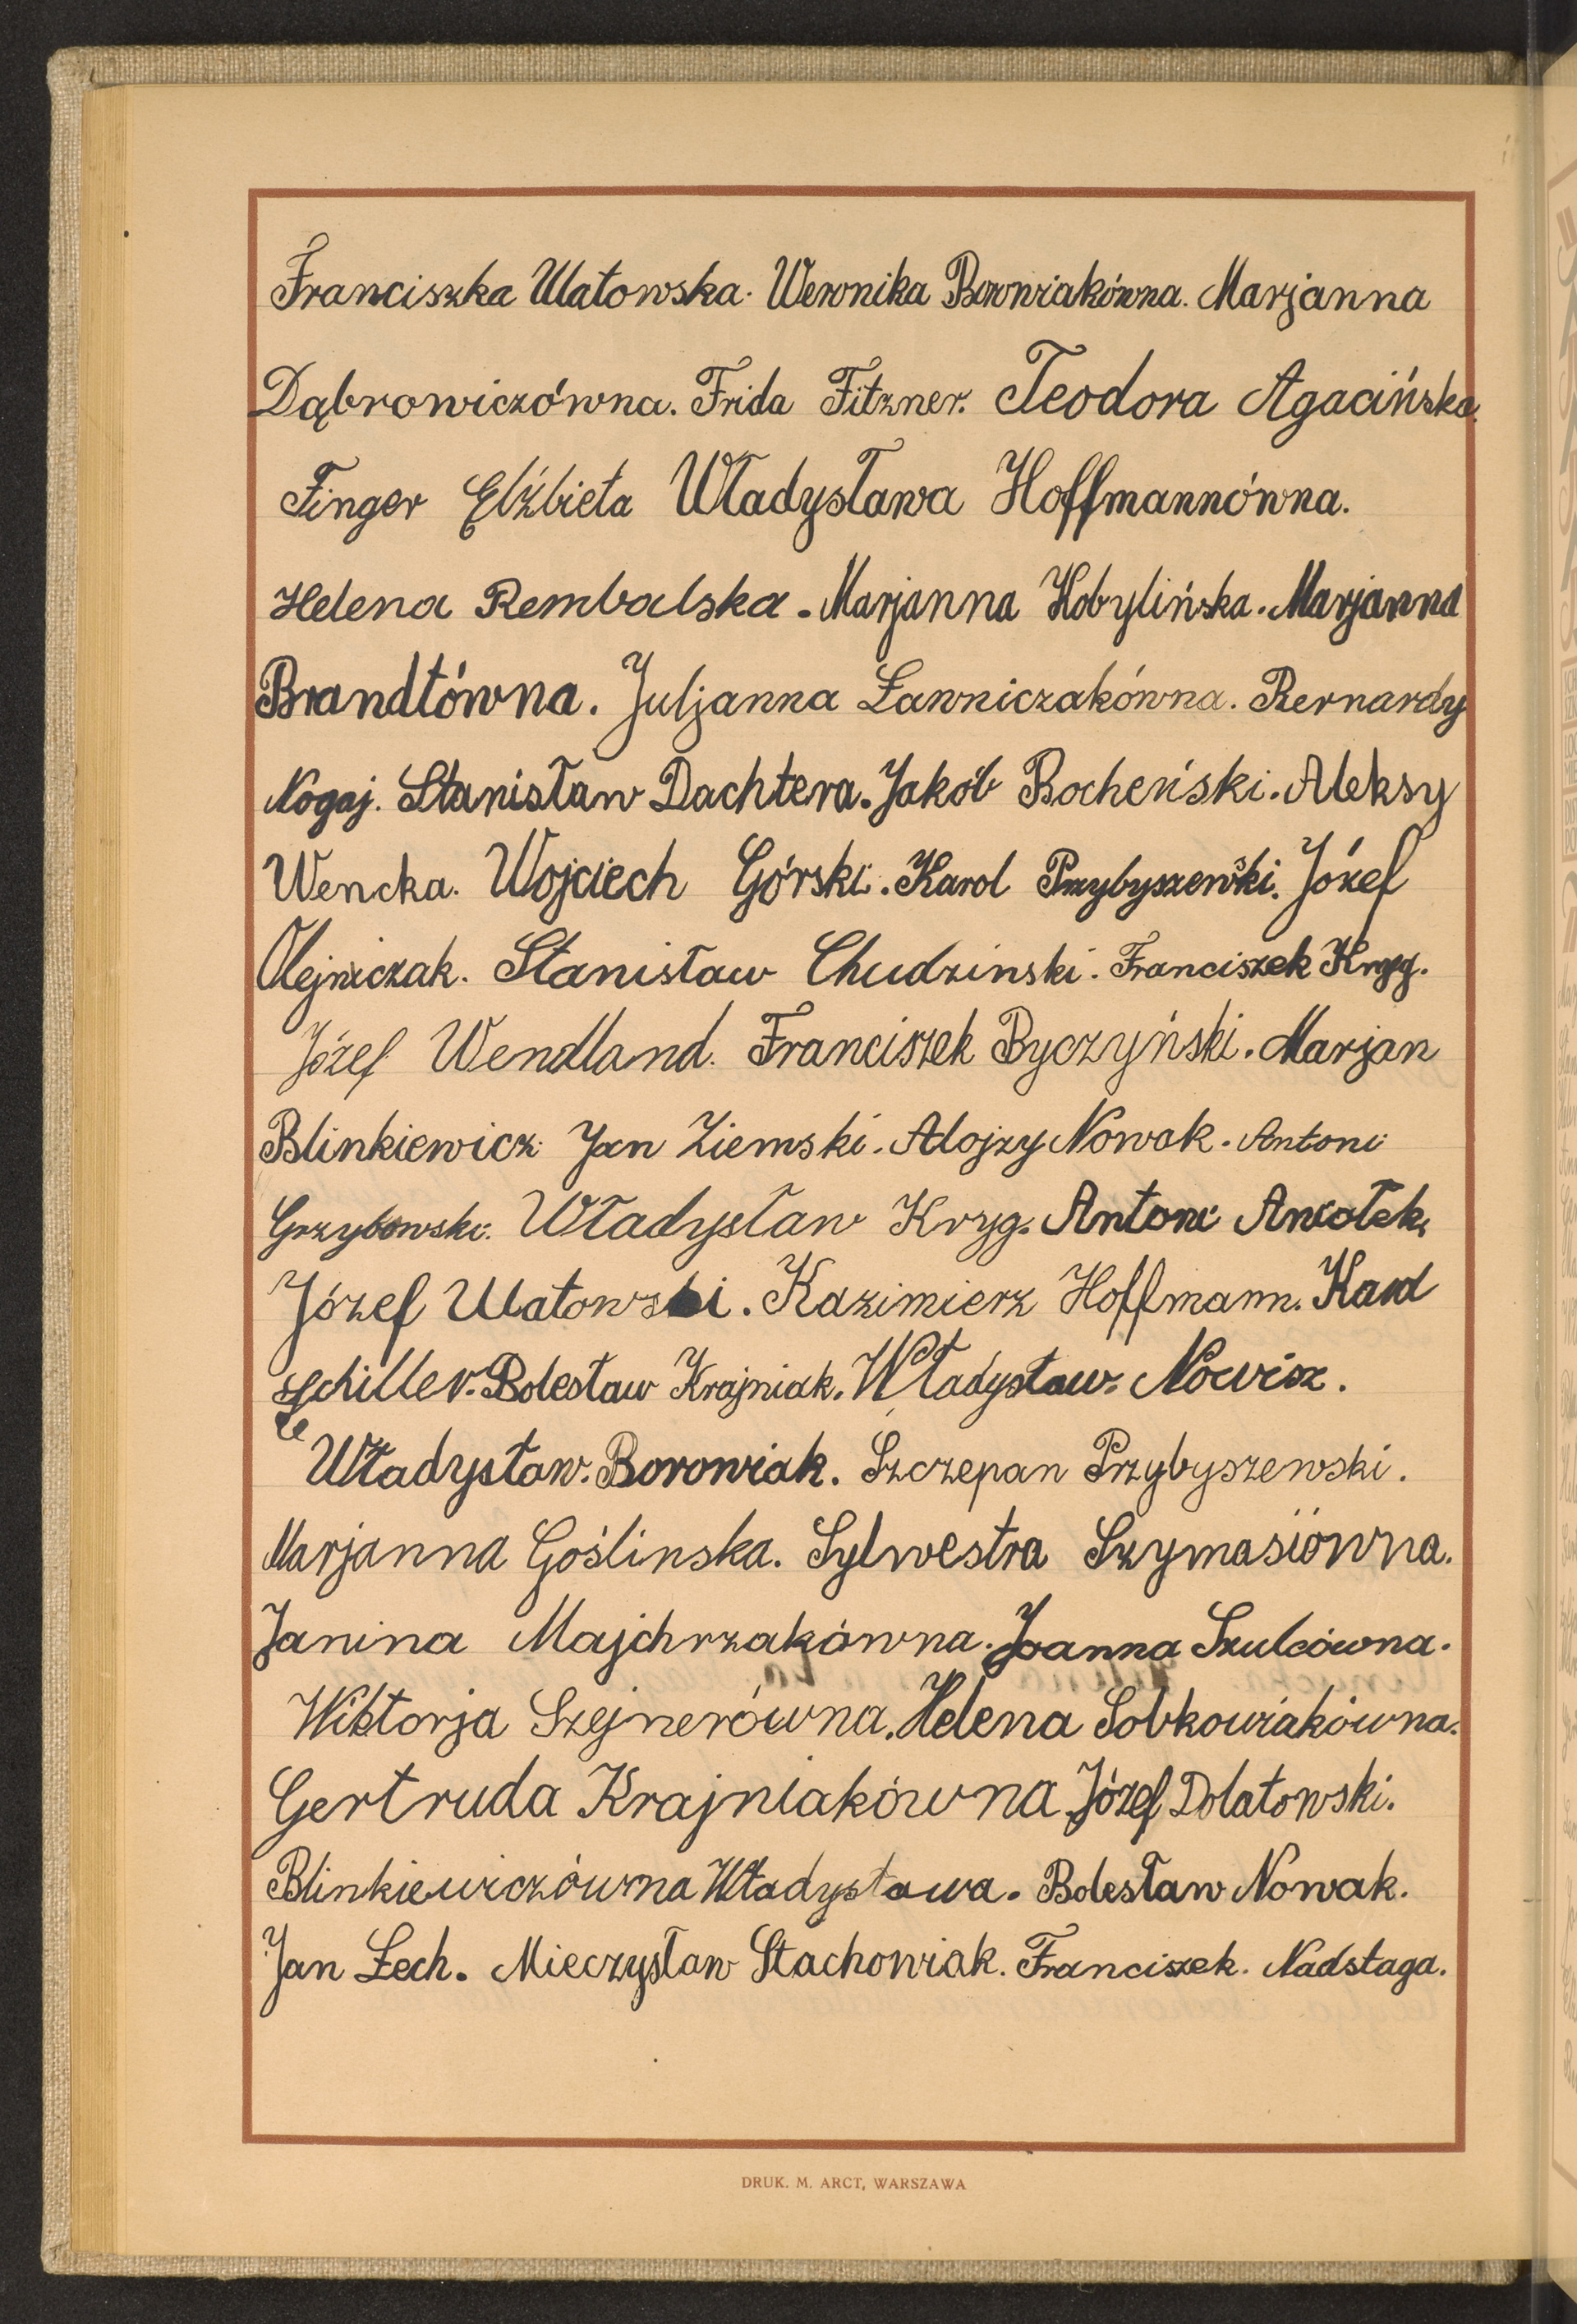 Franciszka Ulatowska. Weronika Borowiakówna. Marjanna
Dąbrowiczówna. Frida Fitzner. Teodora Agacińska.
Finger Elżbieta Władysława Hoffmannówna.
Helena Rembalska. Marjanna Kobylińska. Marjanna
Brandtówna. Juljanna Ławniczakówna. Bernardy
Nogaj. Stanisław Dachtera. Jakób Bocheński. Aleksy
Wencka. Wojciech Górski. Karol Przybyszewski. Józef
Olejniczak. Stanisław Chudzinski. Franciszek Kryg.
Józef Wendland. Franciszek Byczyński. Marjan
Blinkiewicz. Jan Ziemski. Alojzy Nowak. Antoni
Grzybowski. Władysław Kryg. Antoni Aniołek.
Józef Ulatowski. Kazimierz Hoffmann. Karol
Schiller. Bolesław Krajniak. Władysław. Nowisz.
Władysław. Borowiak. Szczepan Przybyszewski.
Marjanna Goślinska. Sylwestra Szymasiówna.
Janina Majchrzakówna. Joanna Szulcówna.
Wiktorja Szejnerówna. Helena Sobkowiakówna.
Gertruda Krajniakówna. Józef Dolatowski.
Blinkiewiczówna Władysława. Bolesław Nowak.
Jan Lech. Mieczysław Stachowiak. Franciszek. Nadstaga.
DRUK. M. ARCT, WARSZAWA